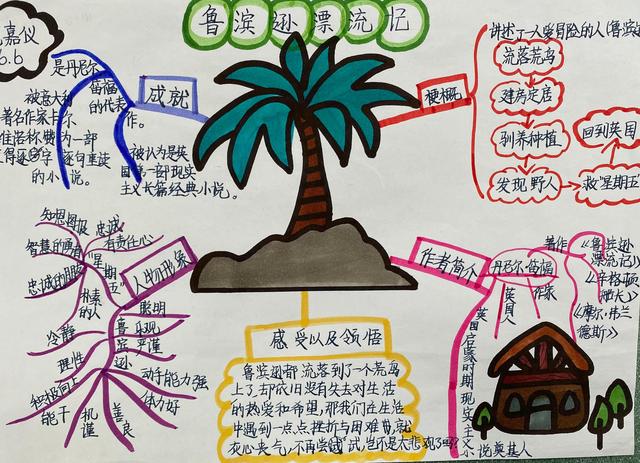 鲁滨逊漂流记
嘉仪
6.6
成就
是丹尼尔
笛福
的代表
作。
被意大利
著名作家卡尔
维诺称赞为一部
值得逐字逐句重读
的小说。
被认为是英
国第一部现实
主义长篇经典小说。
梗概
讲述了一人爱冒险的人(鲁滨逊
流落荒岛
建房定居
驯养种植
发现野人
救"星期五"
回到英国
人物形象
"星期
五"
知恩图报
忠诚
有责任心
智慧的勇者
忠诚的朋友
朴素
的人
鲁
滨
逊
聪明
乐观
严谨
动手能力强
体力好
善良
机谨
能干
积极向上
理性
冷静
作者简介
丹尼尔·笛福
英国人
作家
著作
《鲁宾逊
漂流记》
《辛格顿
船长》
《摩尔·弗兰
德斯》
英国启蒙时期现实主义小说奠基人
感受以及领悟
鲁滨逊都流落到了一个荒岛
上了,却依旧没有失去对生活
的热爱和希望,那我们在生活
中遇到一点点挫折与困难,就
灰心丧气,不再尝试试,岂不是太悲观了吗?